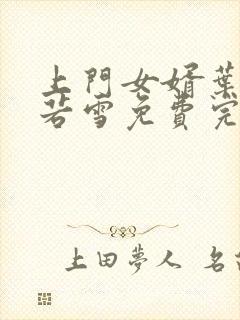 上門女婿葉
若雪免費完
上田夢人 名